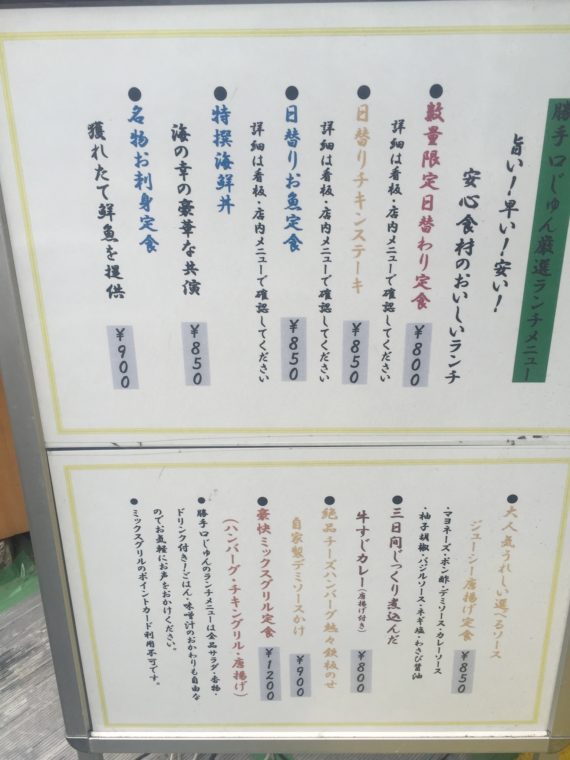 勝手口じゅん厳選ランチメニュー
旨い!早い!安い!
安心食材のおいしいランチ
●数量限定日替わり定食 ¥800
詳細は看板・店内メニューで確認してください
●日替りチキンステーキ ¥850
詳細は看板・店内メニューで確認してください
●日替りお魚定食 ¥850
詳細は看板・店内メニューで確認してください
●特撰海鮮丼
海の幸の豪華な共演 ¥850
●名物お刺身定食
獲れたて鮮魚を提供 ¥900
●大人気うれしい選べるソース
ジューシー唐揚げ定食 ¥850
・マヨネーズ・ポン酢・デミソース・カレーソース
・柚子胡椒・バジルソース・ネギ塩・わさび醤油
●三日間じっくり煮込んだ
牛すじカレー(唐揚げ付き) ¥800
●絶品チーズハンバーグ熱々鉄板のせ
自家製デミソースかけ ¥900
●豪快ミックスグリル定食 ¥1200
(ハンバーグ・チキングリル・唐揚げ)
●勝手口じゅんのランチメニューは全品サラダ・香物・
ドリンク付き!ごはん・味噌汁のおかわりも自由な
のでお気軽にお声をおかけください。
●ミックスグリルのポイントカード利用不可です。